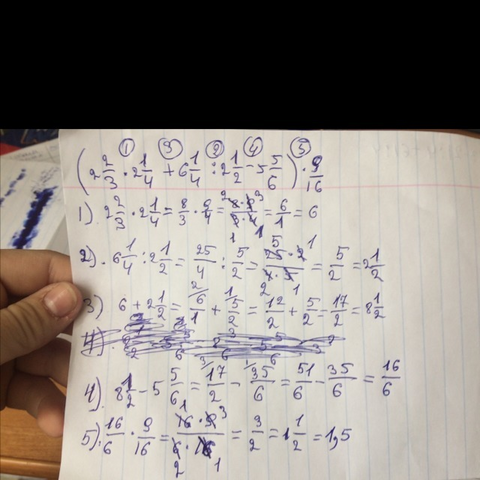 ① ③ ② ④ ⑤
(2 2/3 · 2 1/4 + 6 1/4 : 2 1/2 - 5 5/6) · 9/16
1). 2 2/3 · 2 1/4 = 8/3 · 9/4 = 8·9/3·4 = 6/1 = 6
2). 6 1/4 : 2 1/2 = 25/4 : 5/2 = 25·2/4·5 = 5/2 = 2 1/2
3) 6 + 2 1/2 = 6/1 + 5/2 = 12/2 + 5/2 - 17/2 = 8 1/2
4). 8 1/2 - 5 5/6 = 17/2 - 35/6 = 51/6 - 35/6 = 16/6
5). 16/6 · 9/16 = 16·9/6·16 = 3/2 = 1 1/2 = 1,5